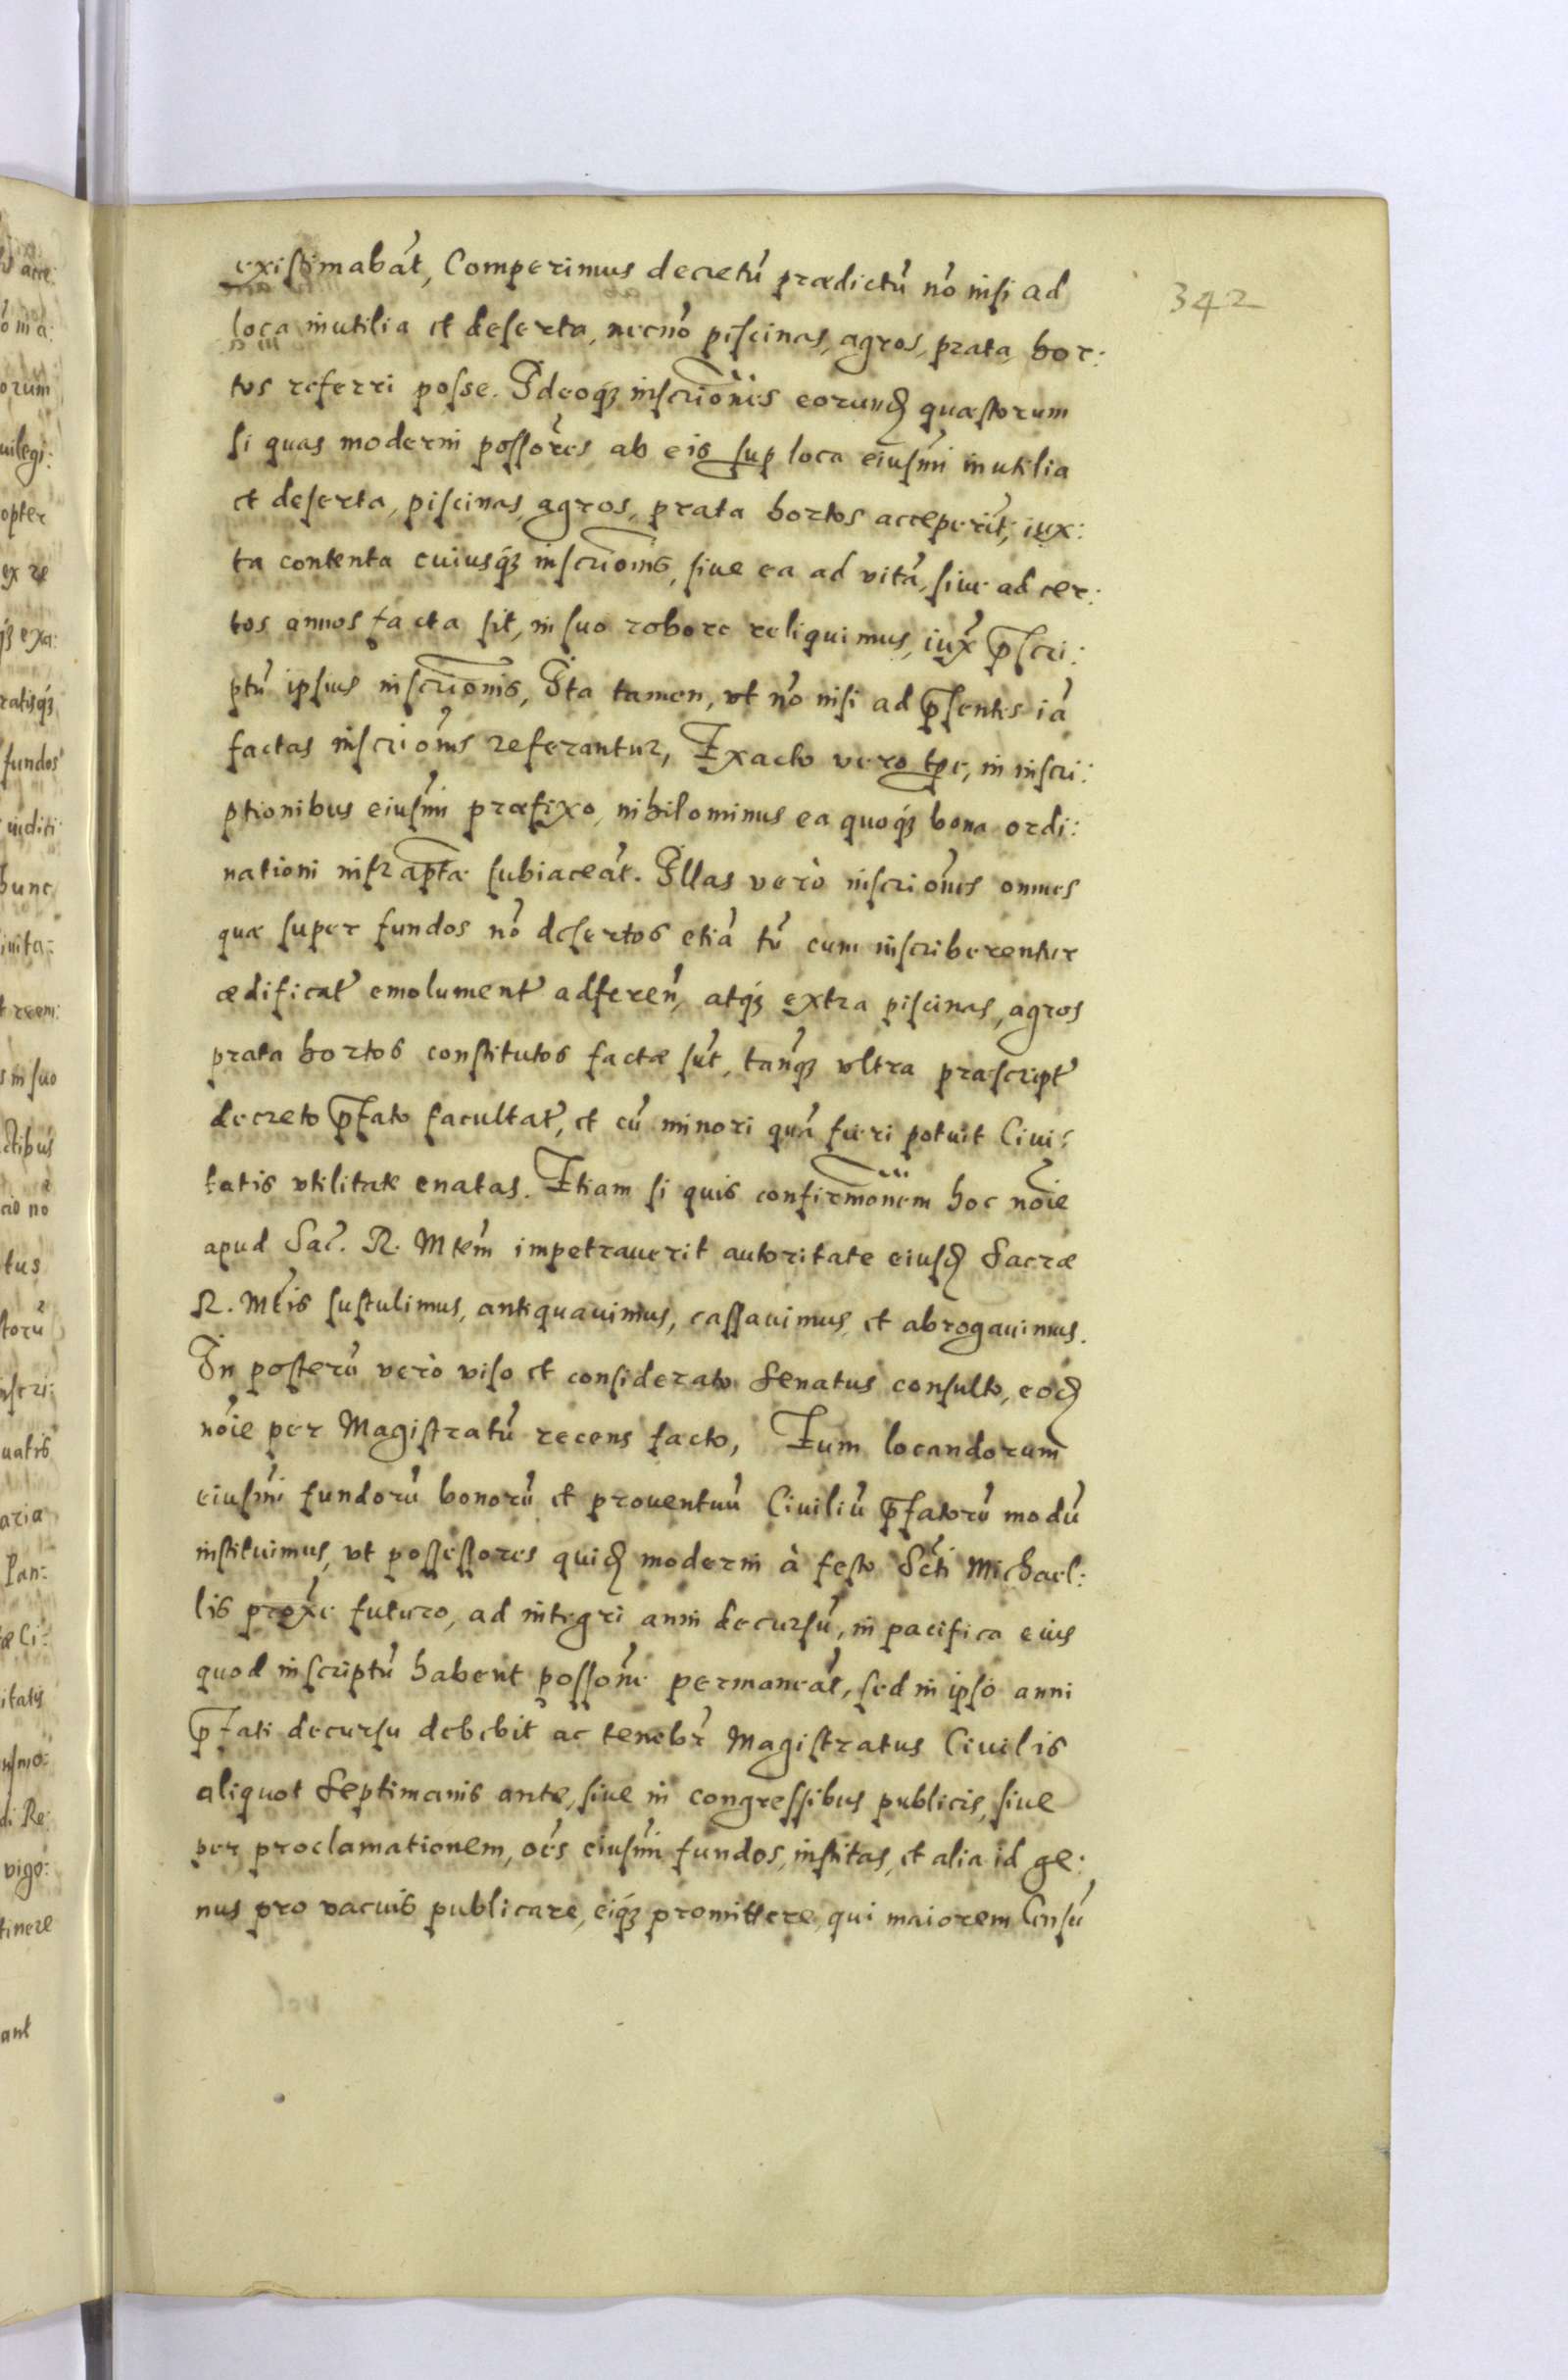 342
existimabāt, Comperimus decretū prædictū nō nisi ad
loca inutilia et deserta, necnō piscinas, agros, prata, hor:
tos referri posse. Ideoqꝫ inscrīones eorund quæstorum
si quas moderni possōres ab eis sup loca eiusm̄i inutilia
et deserta, piscinas, agros, prata hortos acceperūt, iux:
ta contenta cuiusqꝫ inscrīonis, siue ea ad vitā, siue ad cer:
tos annos facta sit, in suo robore reliquimus, iux̄ p̄scri:
ptū ipsius inscrīonis, Ita tamen, vt nō nisi ad p̄sentes iā
factas inscriōnis referantur, Exacto vero tp̄e, in inscri:
ptionibus eiusm̄i præfixo, nihilominus ea quoqꝫ bona ordi:
nationi infrap̄tæ subiaceāt. Illas verò inscriōnes omnes
quæ super fundos nō desertos etiā tū cum inscriberentur
ædificat emolument adferen̄, atqꝫ extra piscinas, agros
prata hortos constitutos factæ sūt, tanqꝫ vltra præscript
decreto p̄fato facultat, et cū minori quā fieri potuit Ciui:
tatis vtilitate enatas. Etiam si quis confirmōnem hoc nōie
apud Sac̄. R. Mtēm impetrauerit autoritate eiusd Sacræ
R. Mt̄is sustulimus, antiquauimus, cassauimus, et abrogauimus.
In posterū verò viso et considerato Senatus consulto, eod
nōie per Magistratū recens facto, Tum locandorum
eiusm̄i fundorū bonorū et prouentuū Ciuiliū p̄fatorū modū
instituimus, vt possessores quid moderni à festo Sc̄ti Michael:
lis prox̄e futuro, ad integri anni decursū, in pacifica eius
quod inscriptū habent possōne permaneāt, sed in ipso anni
p̄fati decursu debebit ac tenebr̄ Magistratus Ciuilis
aliquot Septimanis ante, siue in congressibus publicis, siue
per proclamationem, oēs eiusm̄i fundos, institas, et alia id ge:
nus pro vacuis publicare, eiqꝫ promittere, qui maiorem Censū